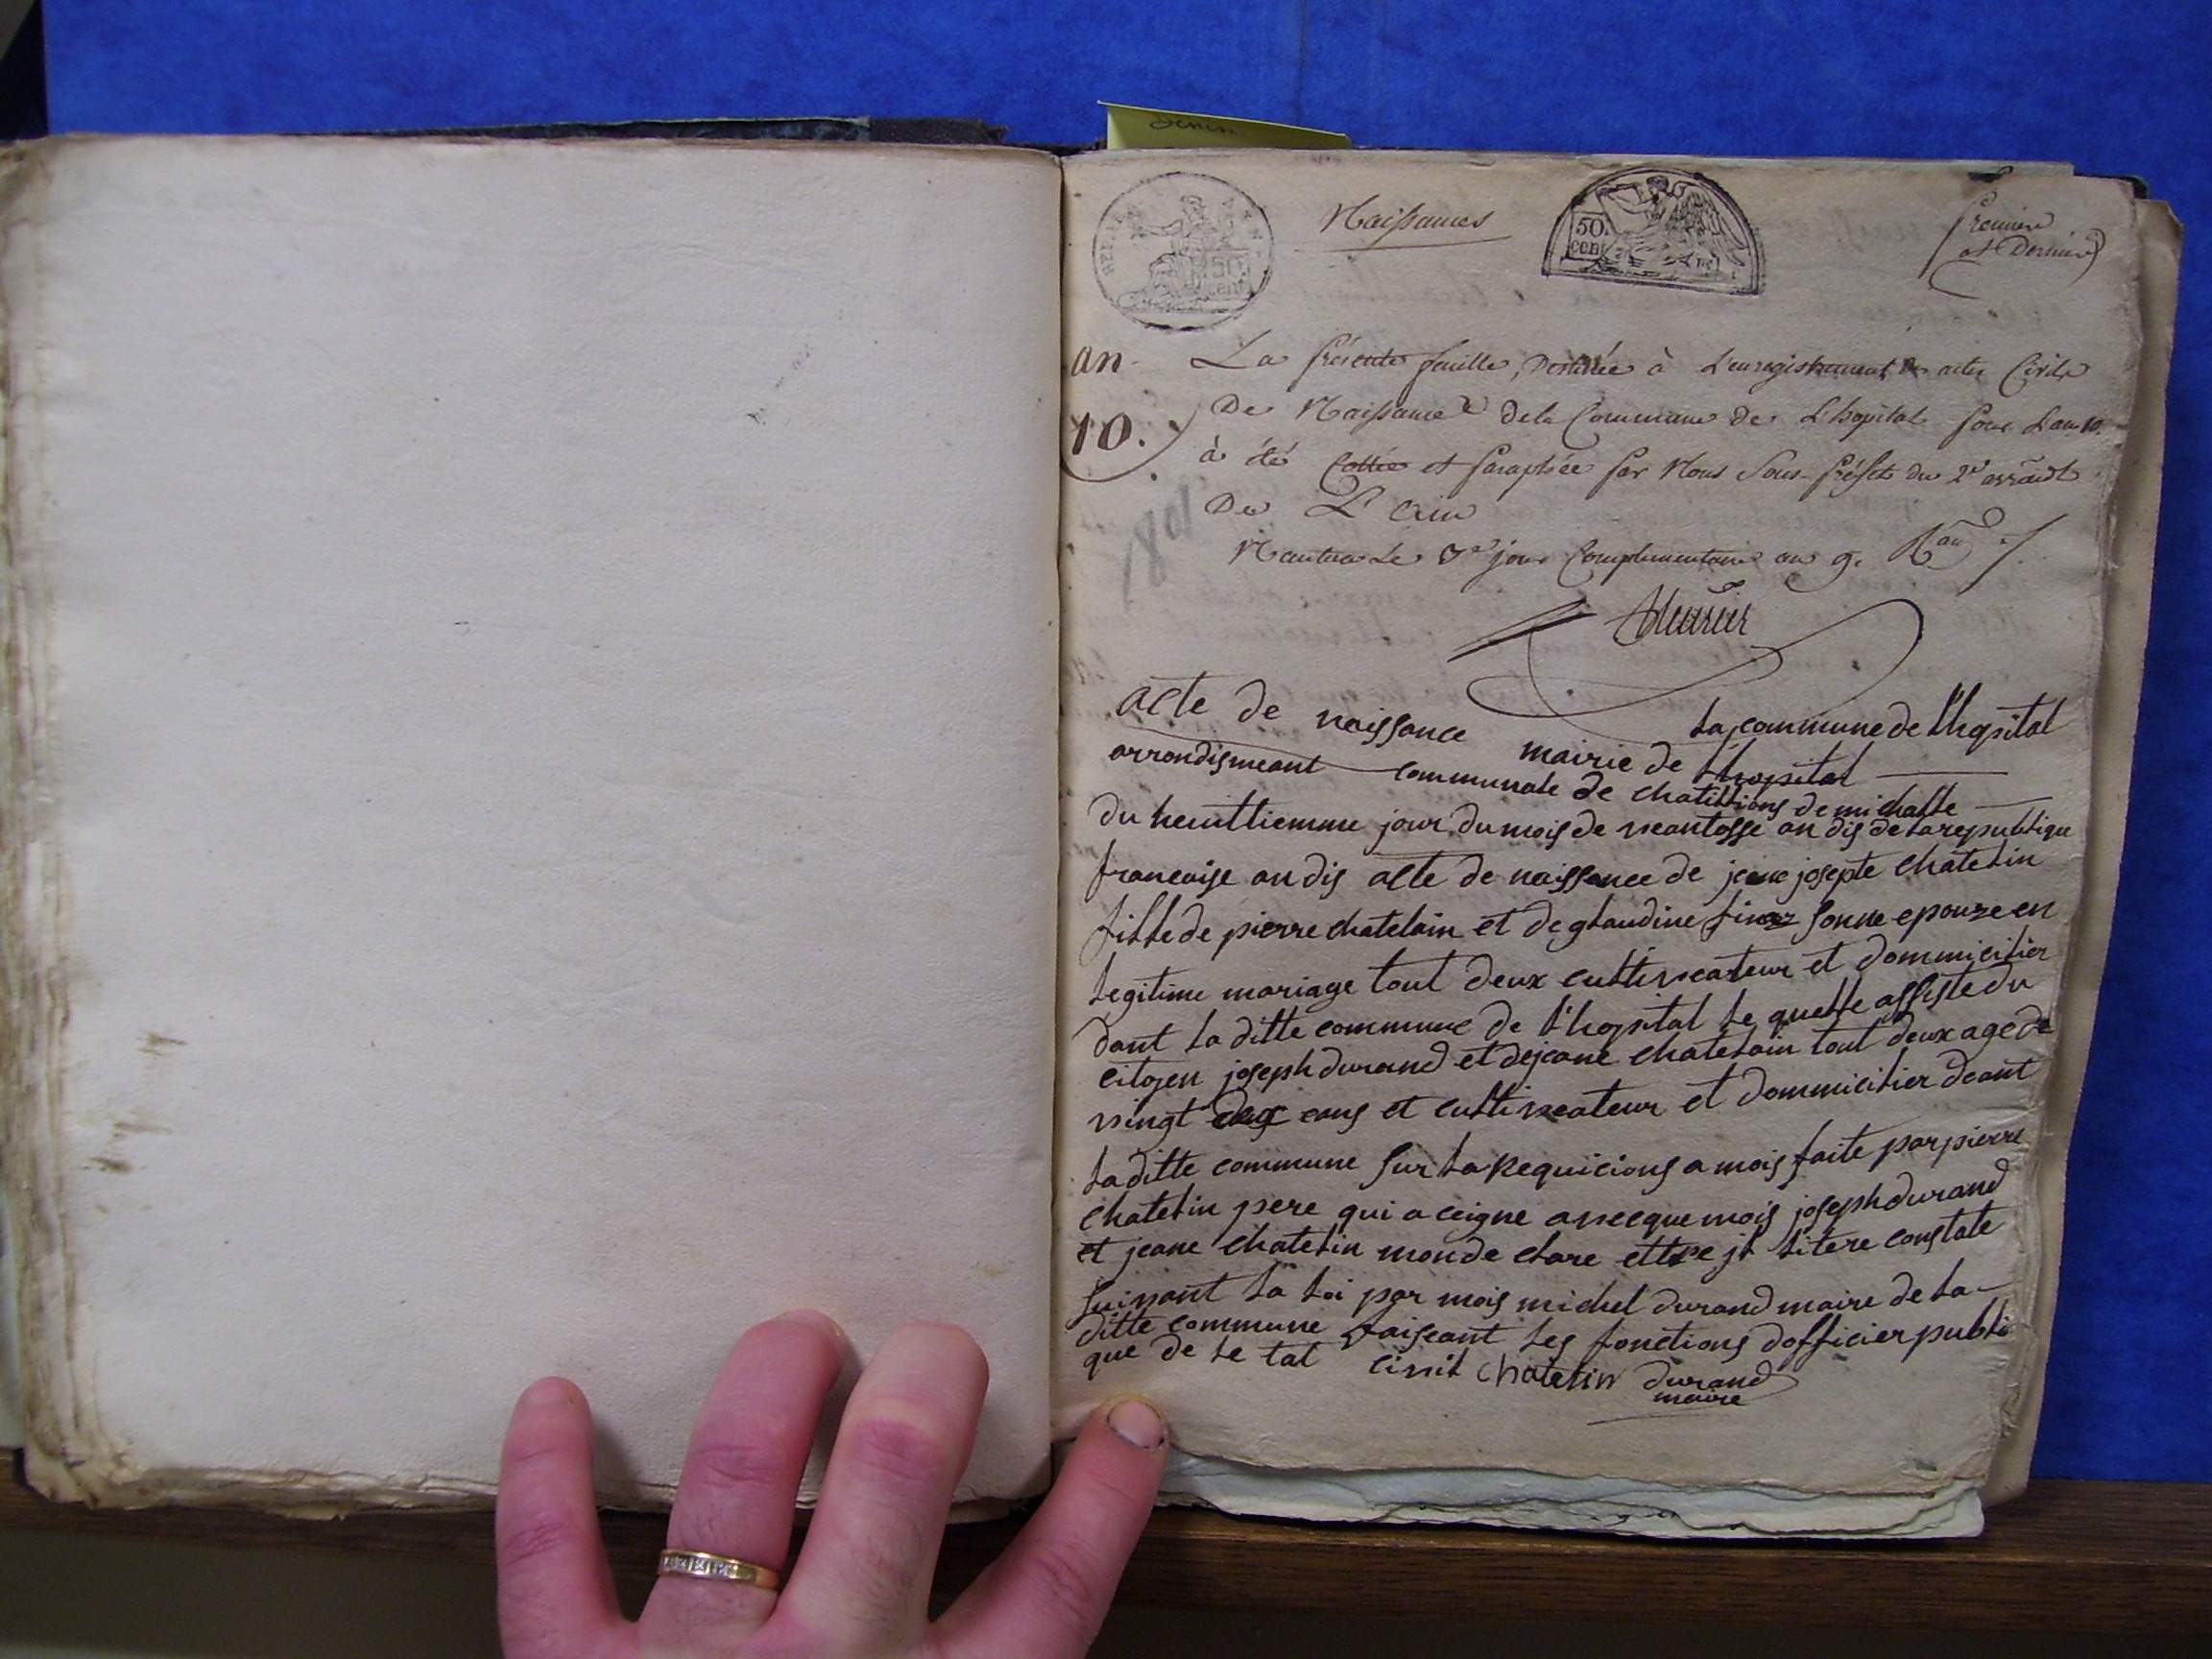 Naissances
50 cent
50 cen
Premiere
et Derniere
an
10.
1801
La présente feuille, Destinée à L'enregistrement Des actes Civils
De Naissance De la Commune De L'hopital pour L'an 10.
à été Cottée et paraphée par Nous Sous-préfet du 2e arrondt
De L'Ain
Nantua Le jour Complementaire an 9.
acte de naissance La commune de l'hopital
mairie de l'hopital
arrondismeant communale de chatillions de michalle
du heuittiemme jour du mois de veantosse an dis de la republique
francaise an dis acte de naissance de jeane josepte chatelin
fille de pierre chatelain et de glaudine sonne epouze en
legitime mariage tout deux cultiveateur et dommicilier
dant la ditte commune de l'hopital le quelle assiste du
citoyen joseph durand et de jeane chatelain tout deux age de
vingt eans et cultiveateur et dommicilier deant
la ditte commune sur la requicions a mois faite par pierre
chatelin pere qui a ceigne avecque mois joseph durand
et jeane chatelin mon de clare ettre jl litere constate
suivant la loi par mois michel durand maire de la
ditte commune faiseant les fonctions dofficier publi
que de le tat civil chatelin durand
maire